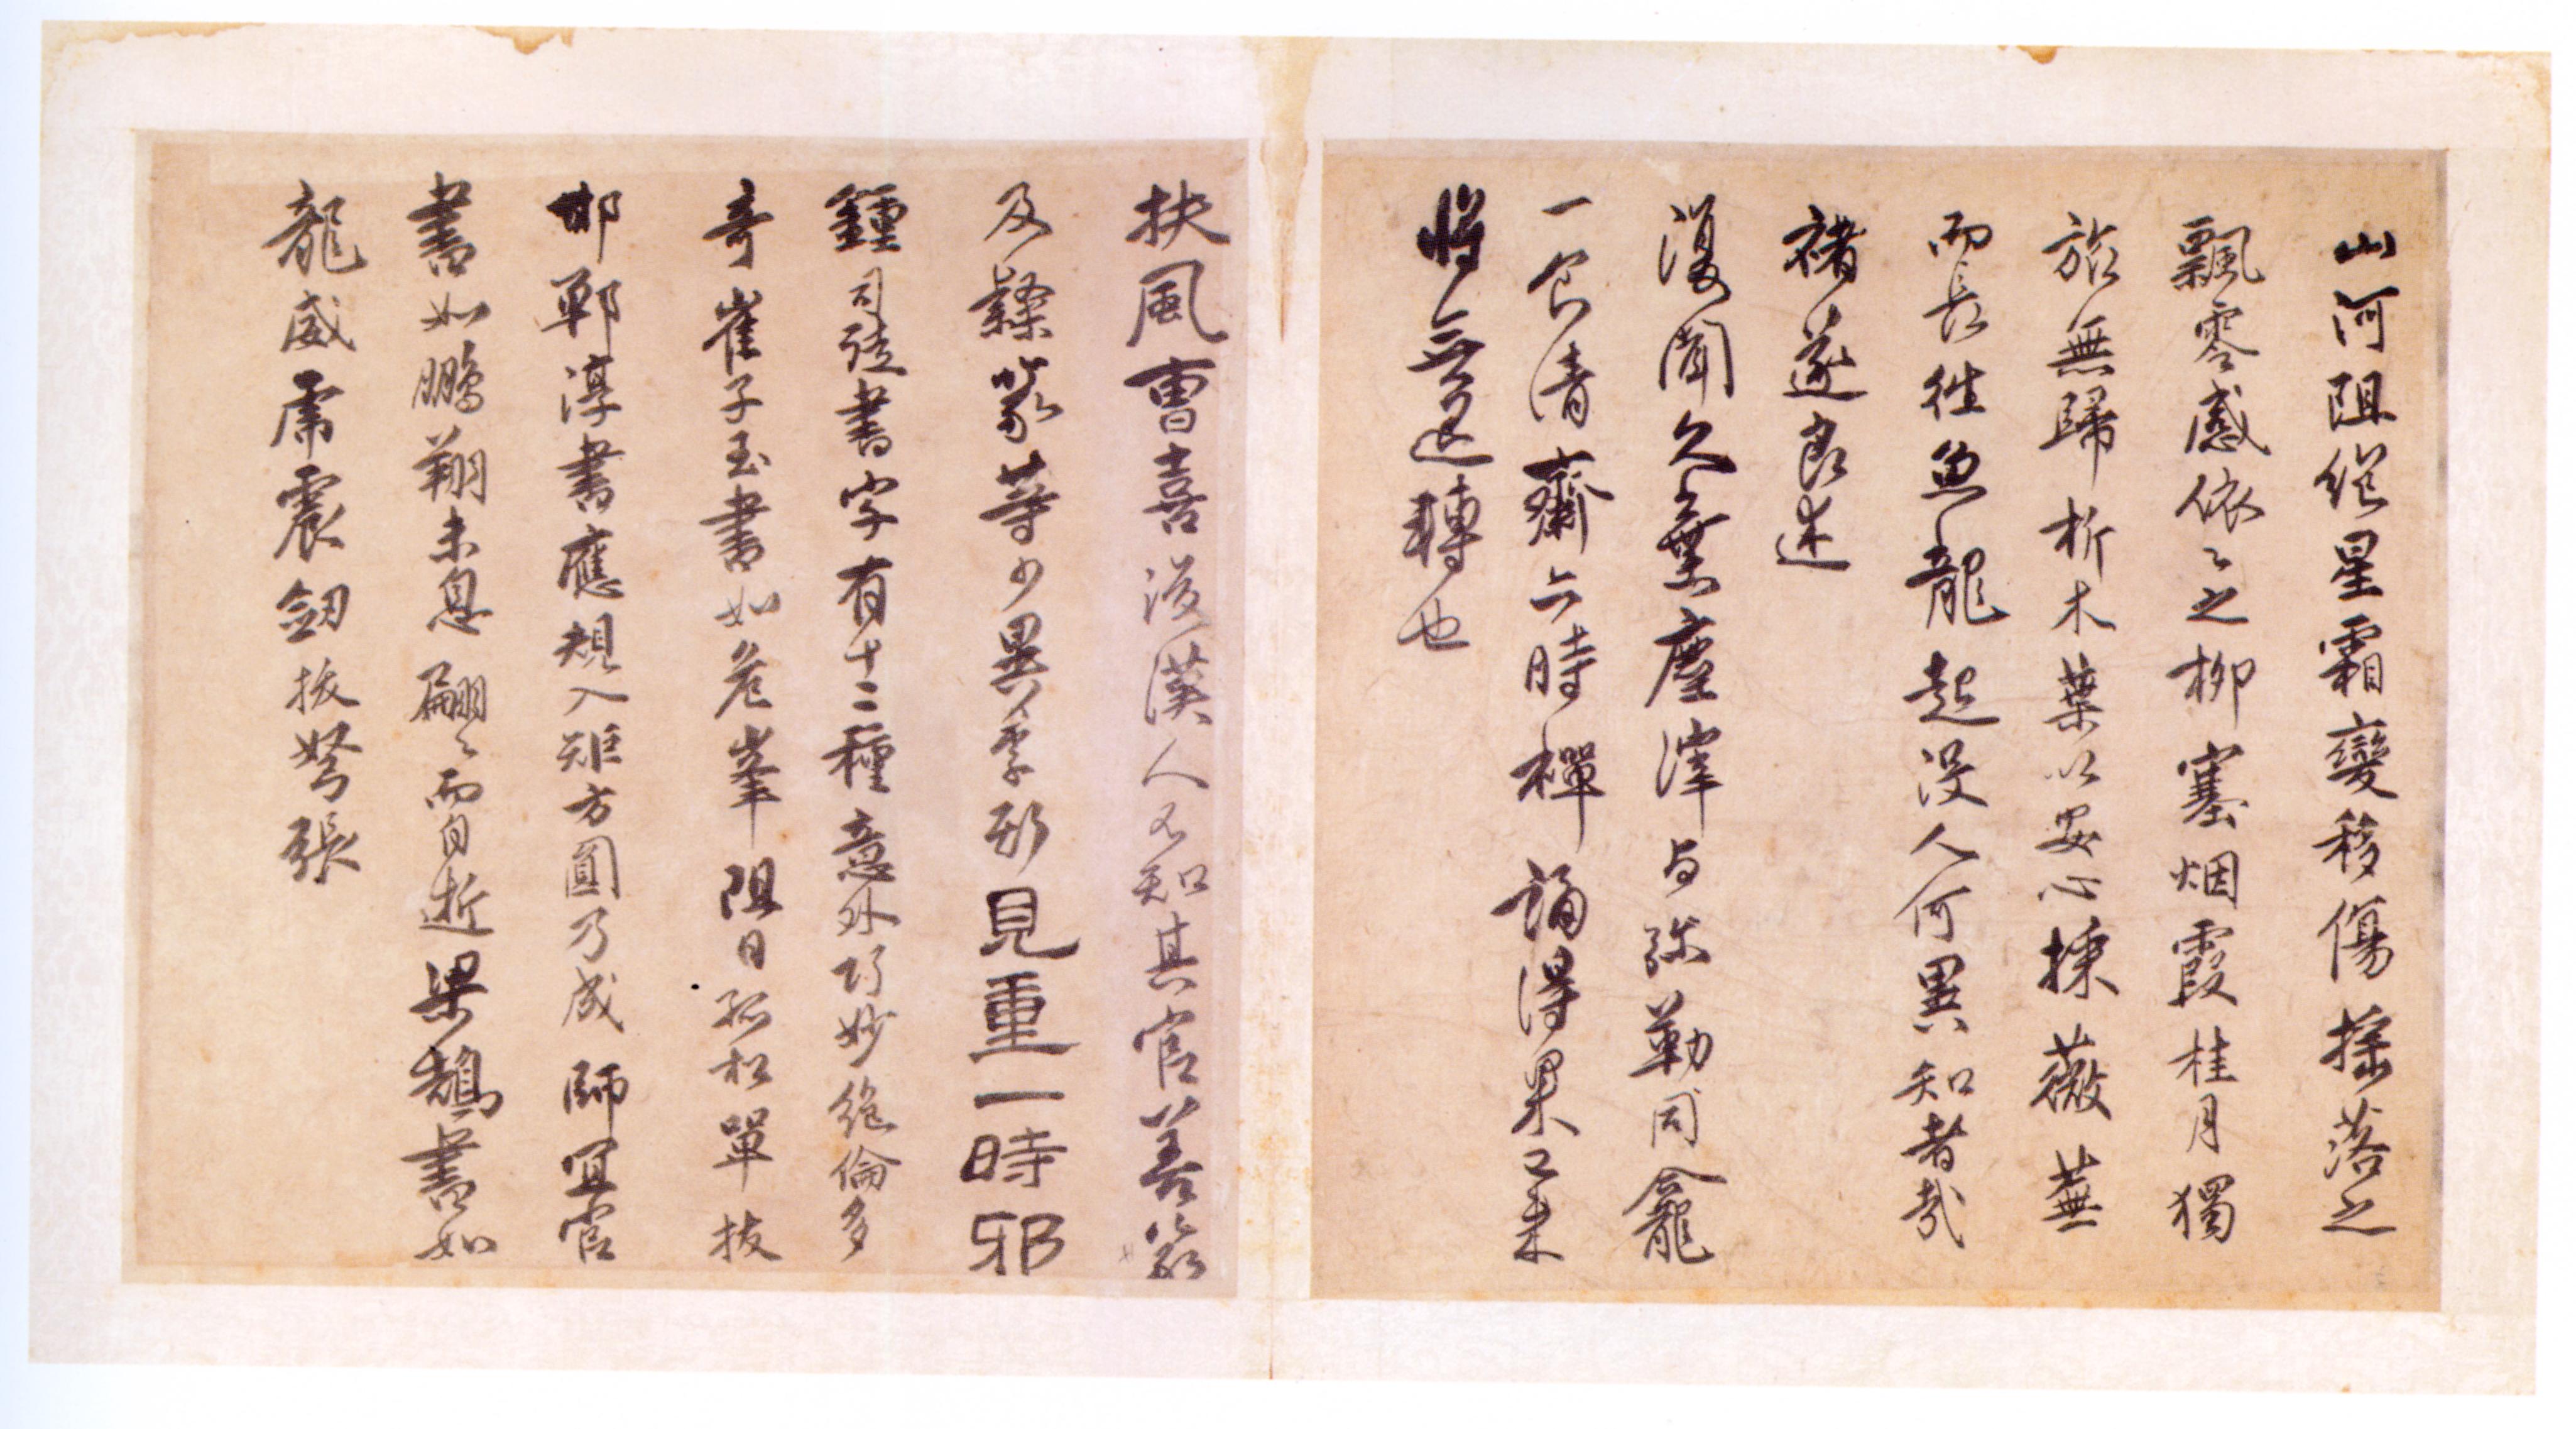 山河阻絶星霜變移傷搖落之
飄零感依々之柳塞烟霞桂月獨
旅無歸折木葉以安心採薇蕪
而長往魚龍起没人何異知者哉
褚遂良述
復聞久棄塵滓与弥勒同龕
一食清齋六時禪誦得果已來
將無退轉也
扶風曹喜後漢人不知其官善篆
及隸篆等少異李斯見重一時邪
鍾司徒書字有十二種意外巧妙絶倫多
奇崔子玉書如危峯阻日孤松單枝
邯鄲淳書應規入矩方圓乃成師宜官
書如鵬翔未息翩々而自逝梁鵠書如
龍威虎震劒拔弩張